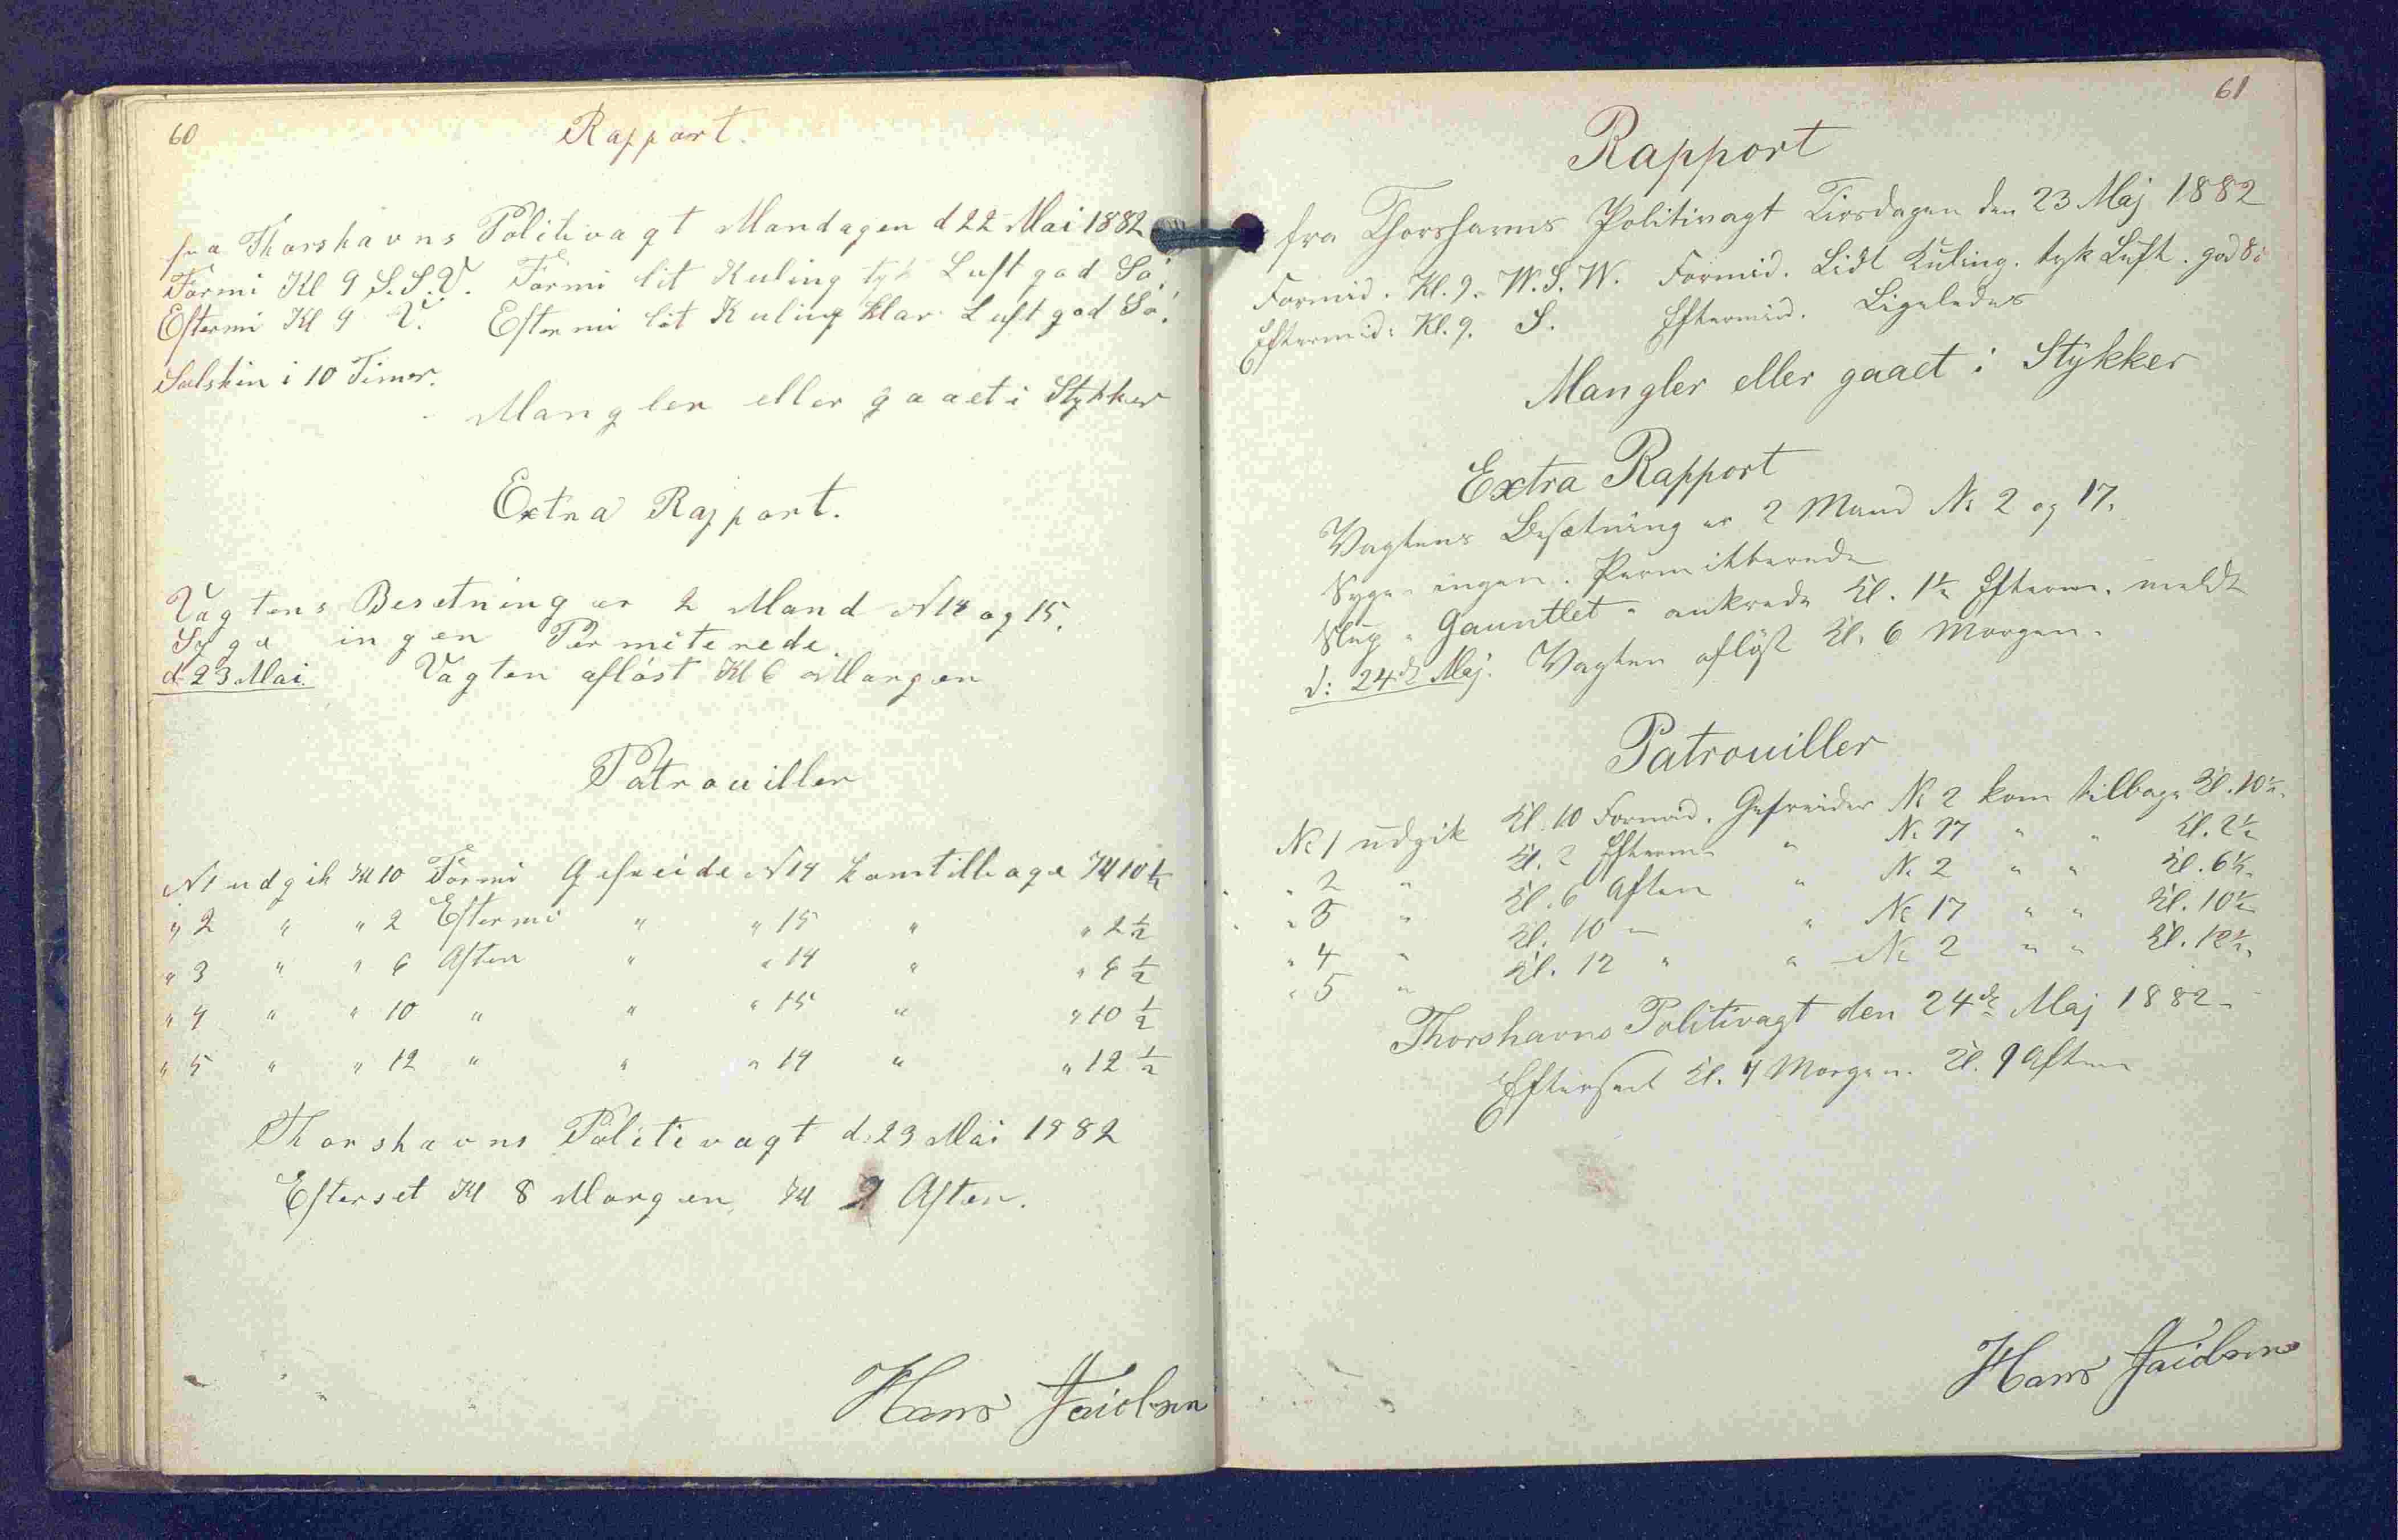 60
Rapport.
fra Thorshavns Politivagt Mandagen d 22 Mai 1882
Formi Kl 9 S.S.V. Formi lit Kuling tyk Luft god Sö.
Eftermi Kl 9 V. Eftermi lit Kuling klar Luft god Sö.
Solskin i 10 Timer.
Mangler eller gaaet i Stykker
Extra Rapport.
Vagtens Besetning er 2 Mand N 14 og 15.
Syge ingen Permiterede.
d 23 Mai. Vagten aflöst Kl 6 Morgen
Patrouiller
N 1 udgik Kl 10 Formi Gefreide N 14 kom tilbage Kl 10 1/2
" 2 " " 2 Eftermi " " 15 " " 2 1/2
" 3 " " 6 Aften " " 14 " " 6 1/2
" 4 " " 10 " " " 15 " " 10 1/2
" 5 " " 12 " " " 14 " " 12 1/2
Thorshavns Politivagt d. 23 Mai 1882
Efterset Kl 8 Morgen, Kl 9 Aften.
Hans
61
Rapport
fra Thorshavns Politivagt Tirsdagen den 23 Maj 1882
Formid. Kl. 9. W.S.W. Formid. Lidt Kuling. tyk Luft. god Sö
Eftermid: Kl. 9. S. Eftermid. Ligeledes
Mangler eller gaaet i Stykker
Extra Rapport
Vagtens Besætning er 2 Mand No 2 og 17.
Syge ingen. Permitterede
Slup "Gauntlet" ankrede Kl. 1 1/2 Efterm. meldt
d: 24de Maj. Vagten aflöst Kl. 6 Morgen.
Patrouiller
No 1 udgik Kl. 10 Formid. Gefreider No 2 kom tilbage Kl. 10 1/2
" 2 " Kl. 2 Efterm. " No 17 " " Kl. 2 1/2
" 3 " Kl. 6 Aften " No 2 " " Kl. 6 1/2
" 4 " Kl. 10 " " No 17 " " Kl. 10 1/2
" 5 " Kl. 12 " " No 2 " " Kl. 12 1/2
Thorshavns Politivagt den 24de Maj 1882.
Efterset Kl. 7 Morgen. Kl. 9 Aften
Hans